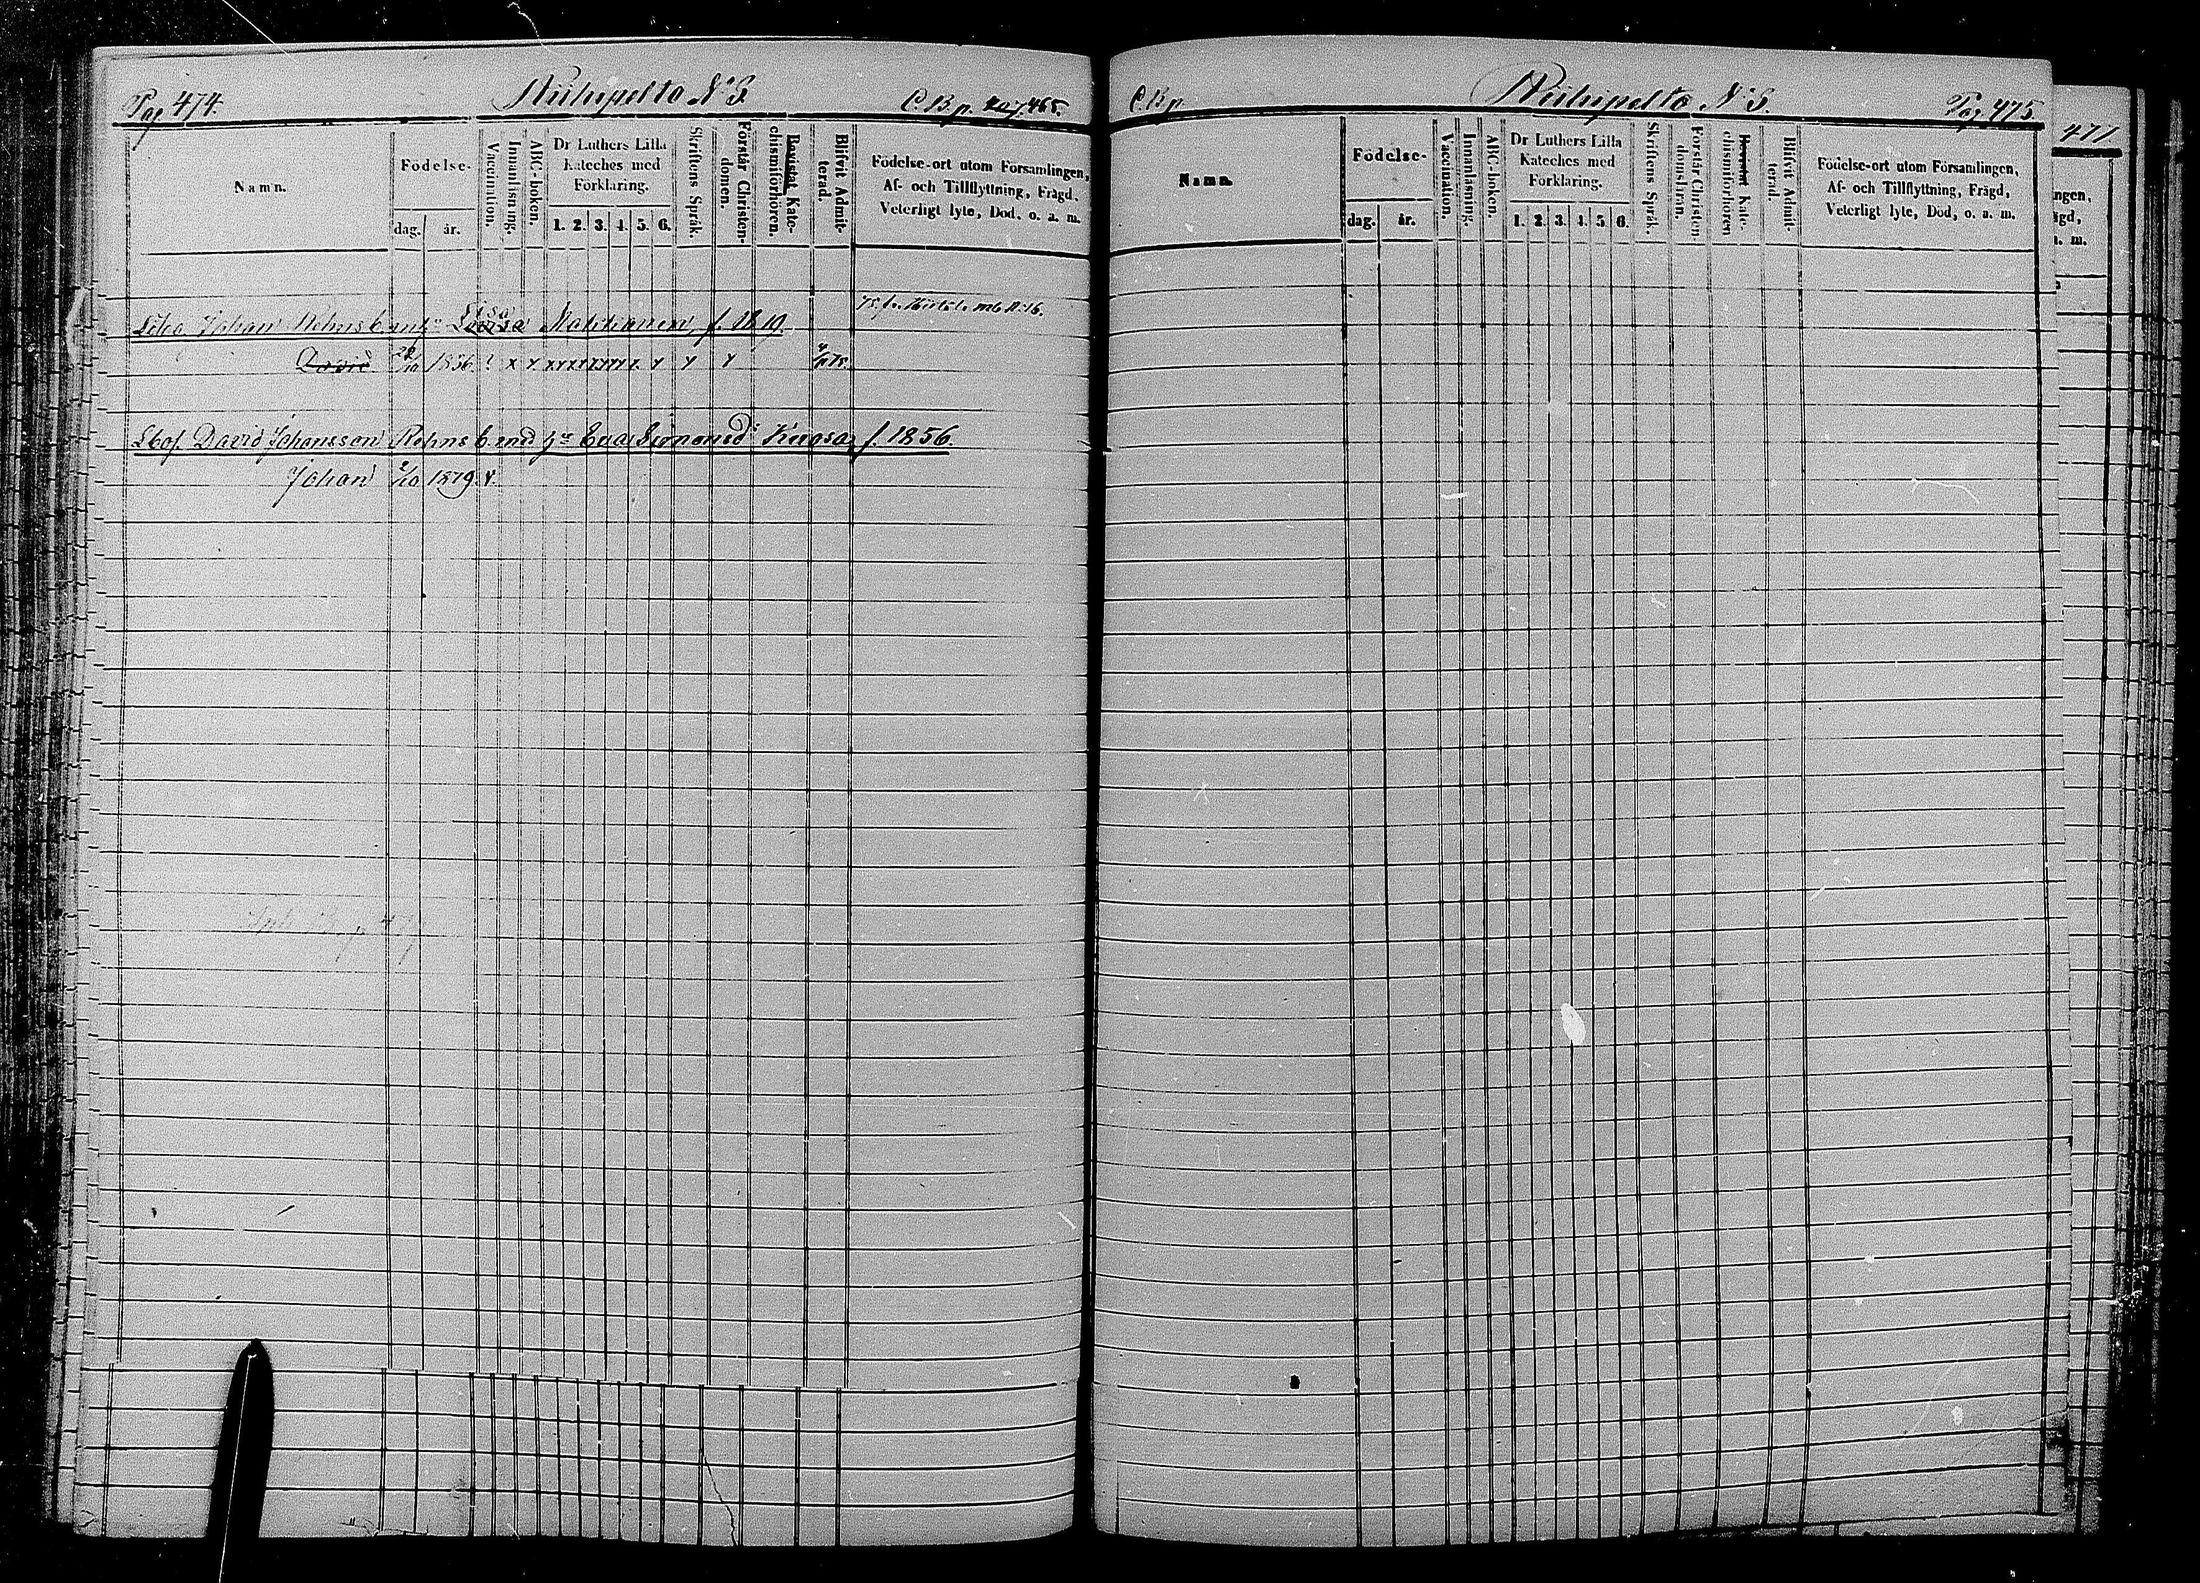 Pag. 474.
Riihipelto N:o 3.
C. B. p. 465.
Namn.
Födelse-
dag.
år.
Vaccination.
Innanläsning.
ABC-boken.
Dr Luthers Lilla
Kateches med
Förklaring.
1. 2. 3. 4. 5. 6.
Skriftens Språk.
Förstår Christen-
domen.
Bevistat Kate-
chismiförhören.
Blifvit Admit-
terad.
Födelse-ort utom Församlingen,
Af- och Tillflyttning, Frägd,
Veterligt lyte, Död, o. a. m.
Johan Rehnsb. Lisa f. 1819.
David 1856 ? x x
David Johansson Rehnsb. med h:u Eva f. 1856.
Johan 2/10 1879. v.
C. B. p.
Riihipelto N:o 3.
Pag. 475.
Namn.
Födelse-
dag.
år.
Vaccination.
Innanläsning.
ABC-boken.
Dr Luthers Lilla
Kateches med
Förklaring.
1. 2. 3. 4. 5. 6.
Skriftens Språk.
Förstår Christen-
domsläran.
Bevistat Kate-
chismiförhören
Blifvit Admit-
terad.
Födelse-ort utom Församlingen,
Af- och Tillflyttning, Frägd,
Veterligt lyte, Död, o. a. m.
477
ngen,
ägd,
a. m.